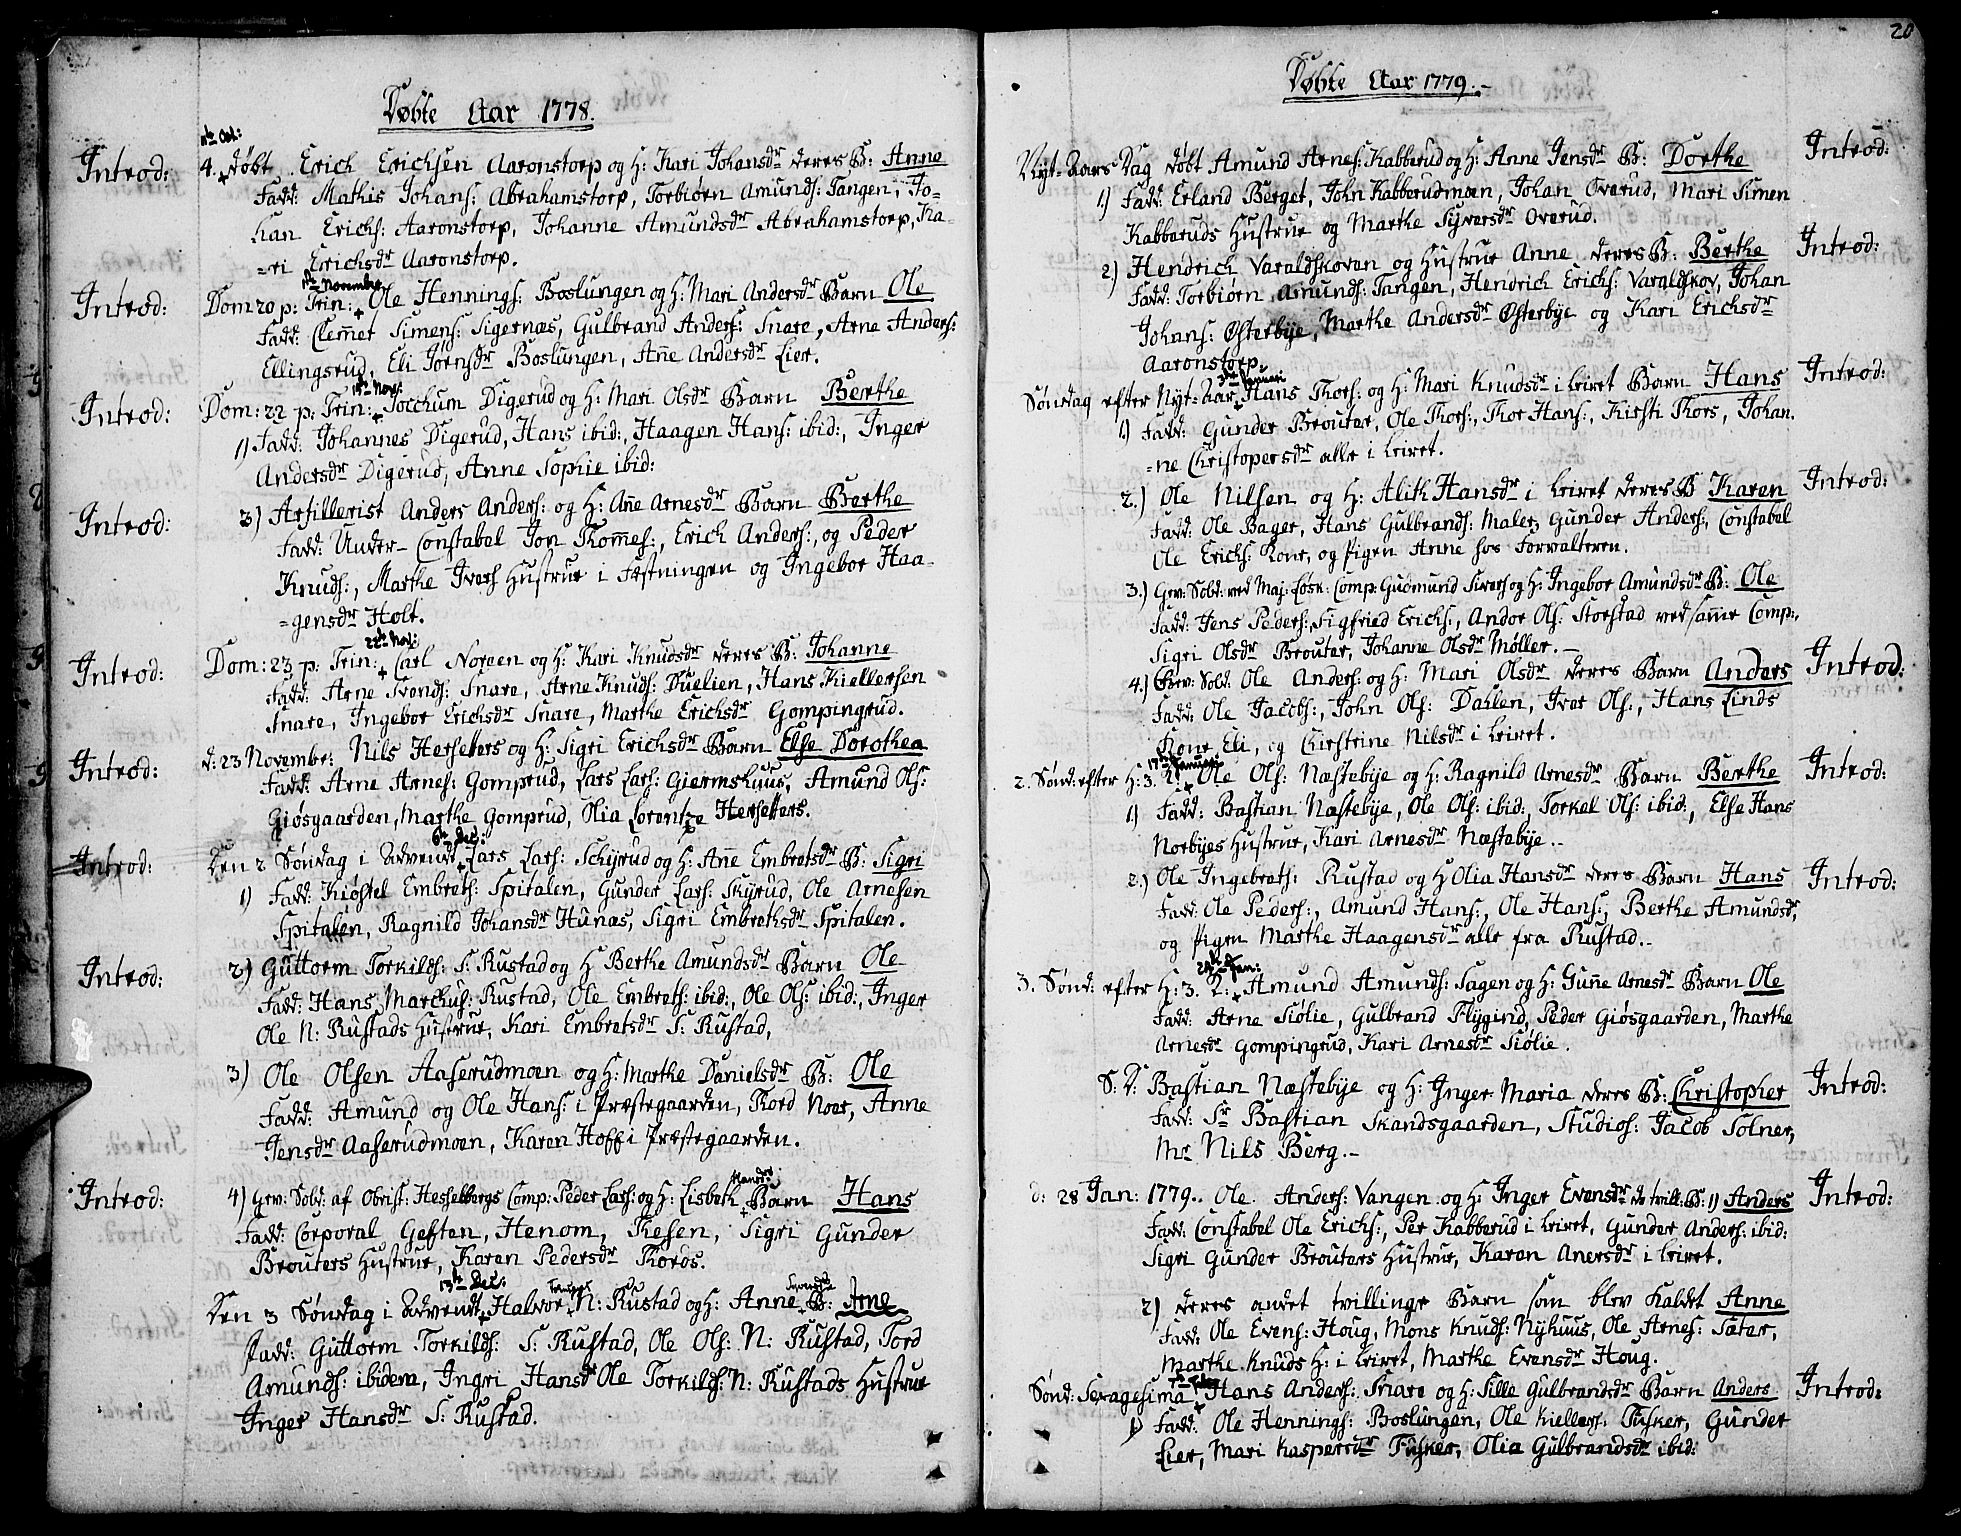 Døbte Aar 1778.
Introd: 4. døbt Erich Erichsen Aaronstorp og H: Kari Johansdr deres B: Anne
Fadd: Mathis Johans: Abrahamstorp, Torbiørn Amunds: Tangen, Jo-
han Erichs: Aaronstorp, Johanne Amundsdr Abrahamstorp, Ka-
=ri Erichsdr Aaronstorp.
1ste Novembr
Introd: Dom 20 p: Trin: Ole Hennings: Boslungen og H: Mari Andersdr Barn Ole
Fadd: Clemet Simens: Sigernæs, Gulbrand Anders: Snare, Arne Anders:
Ellingsrud, Eli Jørnsdr Boslungen, Anne Andersdr Lier.
15de Nov:
Introd: Dom: 22 p: Trin: Jocchum Digerud og H: Mari Olsdr Barn Berthe
1) Fadd: Johannes Digerud, Hans ibid:, Haagen Hans: ibid:, Inger
Andersdr Digerud, Anne Sophie ibid:
Introd: 3) Artillerist Anders Anders: og H: Ane Arnesdr Barn Berthe
Fadd: Under-Constabel Jon Tommes:, Erich Anders:, og Peder
Knuds:, Marthe Ivers Hustrue i Fæstningen og Ingebor Haa-
=gensdr Holt.
22de Nov:
Introd: Dom: 23 p: Trin: Carl Noreen og H: Kari Knudsdr deres B: Johanne
Fadd: Arne Svends: Snare, Arne Knuds: Duelien, Hans Kiellersen
Snare, Ingebor Erichsdr Snare, Marthe Erichsdr Gompingrud.
Introd: d: 23 November: Nils Hersetters og H: Sigri Erichsdr Barn Else Dorothea
Fadd: Arne Arnes: Gomprud, Lars Lars: Giermshuus, Amund Ols:
Giøsgaarden, Marthe Gomprud, Olia Lorentze Hersetters.
6te Dec:
Introd: Den 2 Søndag i Advendt Lars Lars: Schyrud og H: Ane Embretsdr B: Sigri
1) Fadd: Kiøstel Embrets: Spitalen, Gunder Lars: Skyrud, Ole Arnesen
Spitalen, Ragnild Johansdr Hunæs, Sigri Embrethsdr Spitalen.
Introd: 2) Guttorm Torkilds: S: Rustad og H Berthe Amundsdr Barn Ole
Fadd: Hans Marckus: Rustad, Ole Embrets: ibid:, Ole Ols: ibid:, Inger
Ole N: Rustads Hustrue, Kari Embretsdr S: Rustad,
3) Ole Olsen Aaserudmoen og H: Marthe Danielsdr B: Ole
Fadd: Amund og Ole Hans: i Præstegaarden, Tord Noer, Anne
Jensdr Aaserudmoen, Karen Hoff i Præstegaarden.
Introd: 4) Gev: Sold: af Obrist: Hesselbergs Comp: Peder Lars: og H: Lisbeth Barn Hans
Fadd: Corporal Gesten, Henom, Tresen, Sigri Gunder
Brouters Hustrue, Karen Pedersdr Tords.
13de Dec:
Den 3 Søndag i Advendt Halvor N: Rustad og H: Anne B: Arne
Fadd: Guttorm Torkilds: S: Rustad, Ole Ols: N: Rustad, Tord
Amunds: ibidem, Ingri Hansdr Ole Torkilds: N: Rustads Hustrue
Inger Hansdr S: Rustad.
20
Døbte Aar 1779.-
Nyt-Aars Dag døbt Amund Arnes: Kabberud og H: Anne Jensdr B: Dorthe Introd:
1) Fadd: Erland Berget, John Kabberudmoen, Johan Overud, Mari Simen
Kabberuds Hustrue og Marthe Syversdr Overud.
2) Hendrich Varaldskovan og Hustrue Anne deres B: Berthe Introd:
Fadd: Torbiørn Amunds: Tangen, Hendrich Erichs: Varaldskov, Johan
Johans: Østerbye, Marthe Andersdr Østerbye og Kari Erichsdr
Aaronstorp.
3die Januari
Søndag efter Nyt-Aar Hans Thors: og H: Mari Knudsdr i Leiret Barn Hans Introd:
1) Fadd: Gunder Brouter, Ole Thors:, Thor Hans:, Kirsti Thors, Johan.
=ne Christopersdr alle i Leiret.
2.) Ole Nilsen og H: Alith Hansdr i Leiret deres B Karen Introd:
Fadd: Ole Bager, Hans Gulbrands: Maler, Gunder Anders:, Constabel
Ole Erichs: Kone, og Pigen Anne hos Forvalteren.
3.) Gev: Sold: ved Maj: Løsk: Comp: Gudmund Sivers og H: Ingebor Amundsdr B: Ole
Fadd: Jens Peders:, Sigfried Erichs:, Andor Ols: Storstad ved samme Comp:,
Sigri Olsdr Brouter, Johanne Olsdr Møller.-
4.) Gev: Sold: Ole Anders: og H: Mari Olsdr deres Barn Anders Introd:
Fadd: Ole Jacobs:, John Ols: Dahlen, Iver Ols:, Hans Linds
Kone Eli, og Chirstine Nilsdr i Leiret.
17de Januari
2. Sønd: efter H: 3. K: Ole Ols: Næstebye og H: Ragnild Arnesdr Barn Berthe Introd:
1) Fadd: Bastian Næstebye, Ole Ols: ibid:, Torkel Ols: ibid:, Else Hans
Norbyes Hustrue, Kari Arnesdr Næstebye.-
2.) Ole Ingebrets: Rustad og H Olia Hansdr deres Barn Hans Introd:
Fadd: Ole Peders:, Amund Hans:, Ole Hans:, Berthe Amundsdr,
og Pigen Marthe Haagensdr alle fra Rustad.-
24de Jan:
3. Sønd: efter H: 3. K: Amund Amunds: Sagen og H: Gune Arnesdr Barn Ole
Fadd: Arne Siølie, Gulbrand Flygind, Peder Giøsgaarden, Marthe
Arnesdr Gompingrud, Kari Arnesdr Siølie.
S: D: Bastian Næstebye og H: Inger Maria deres B: Christopher Introd:
Fadd: Sr Bastian Skandsgaarden, Studios: Jacob Solner,
Mr Nils Berg.-
d: 28 Jan: 1779.. Ole Anders: Vangen og H: Inger Evensdr do tvill: B: 1) Anders Introd:
Fadd: Constabel Ole Erichs:, Per Kabberud i Leiret, Gunder Anders: ibid:
Sigri Gunder Brouters Hustrue, Karen Anersdr i Leiret.
2) deres andet tvillinge Barn som blev kaldet Anne
Fadd: Ole Evens: Houg, Mons Knuds: Nyhuus, Ole Arnes: Sæter,
Marthe Knuds H: i Leiret, Marthe Evensdr Houg.
Sønd: Sexagesima Hans Anders: Snare og H: Sille Gulbrandsdr Barn Anders Introd:
1) Fadd: Ole Hennings: Boslungen, Ole Kiellers: Tusker, Gunder
Lier, Mari Kaspersdr Tusker, Olia Gulbrandsdr ibid: